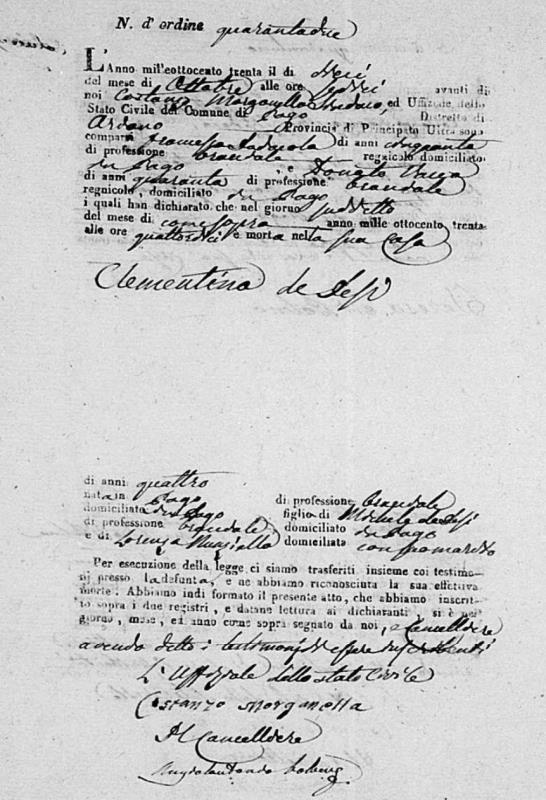 N. d'ordine quarantadue
L'Anno mil'eottocento trenta il di dieci
del mese di Ottobre alle ore sedici avanti di
noi Costanzo Morganella Sindaco, ed Uffiziale dello
Stato Civile del Comune di Pago Distretto di
Ariano Provincia di Principato Ultra sono
comparsi Francesco di anni cinquanta
di professione bracciale regnicolo domiciliato
in Pago, e Donato
di anni quaranta di professione bracciale
regnicolo, domiciliato in Pago
i quali han dichiarato che nel giorno suddetto
del mese di come sopra anno mille ottocento trenta
alle ore quattordici è morta nella sua casa
Clementina de
di anni quattro
nata in Pago di professione bracciale
domiciliato in Pago figlia di Michele
di professione bracciale domiciliato in Pago
e di Lorenza domiciliata con suo marito
Per esecuzione della legge, ci siamo trasferiti insieme coi testimo-
nj presso la defunta, e ne abbiamo riconosciuta la sua effettiva
morte. Abbiamo indi formato il presente atto, che abbiamo inscrit-
to sopra i due registri, e datane lettura ai dichiaranti, si è nel
giorno, mese, ed anno come sopra segnato da noi, e Cancelliere
avendo detto i testimonj di essere
L'Uffiziale dello stato Civile
Costanzo Morganella
Il Cancelliere